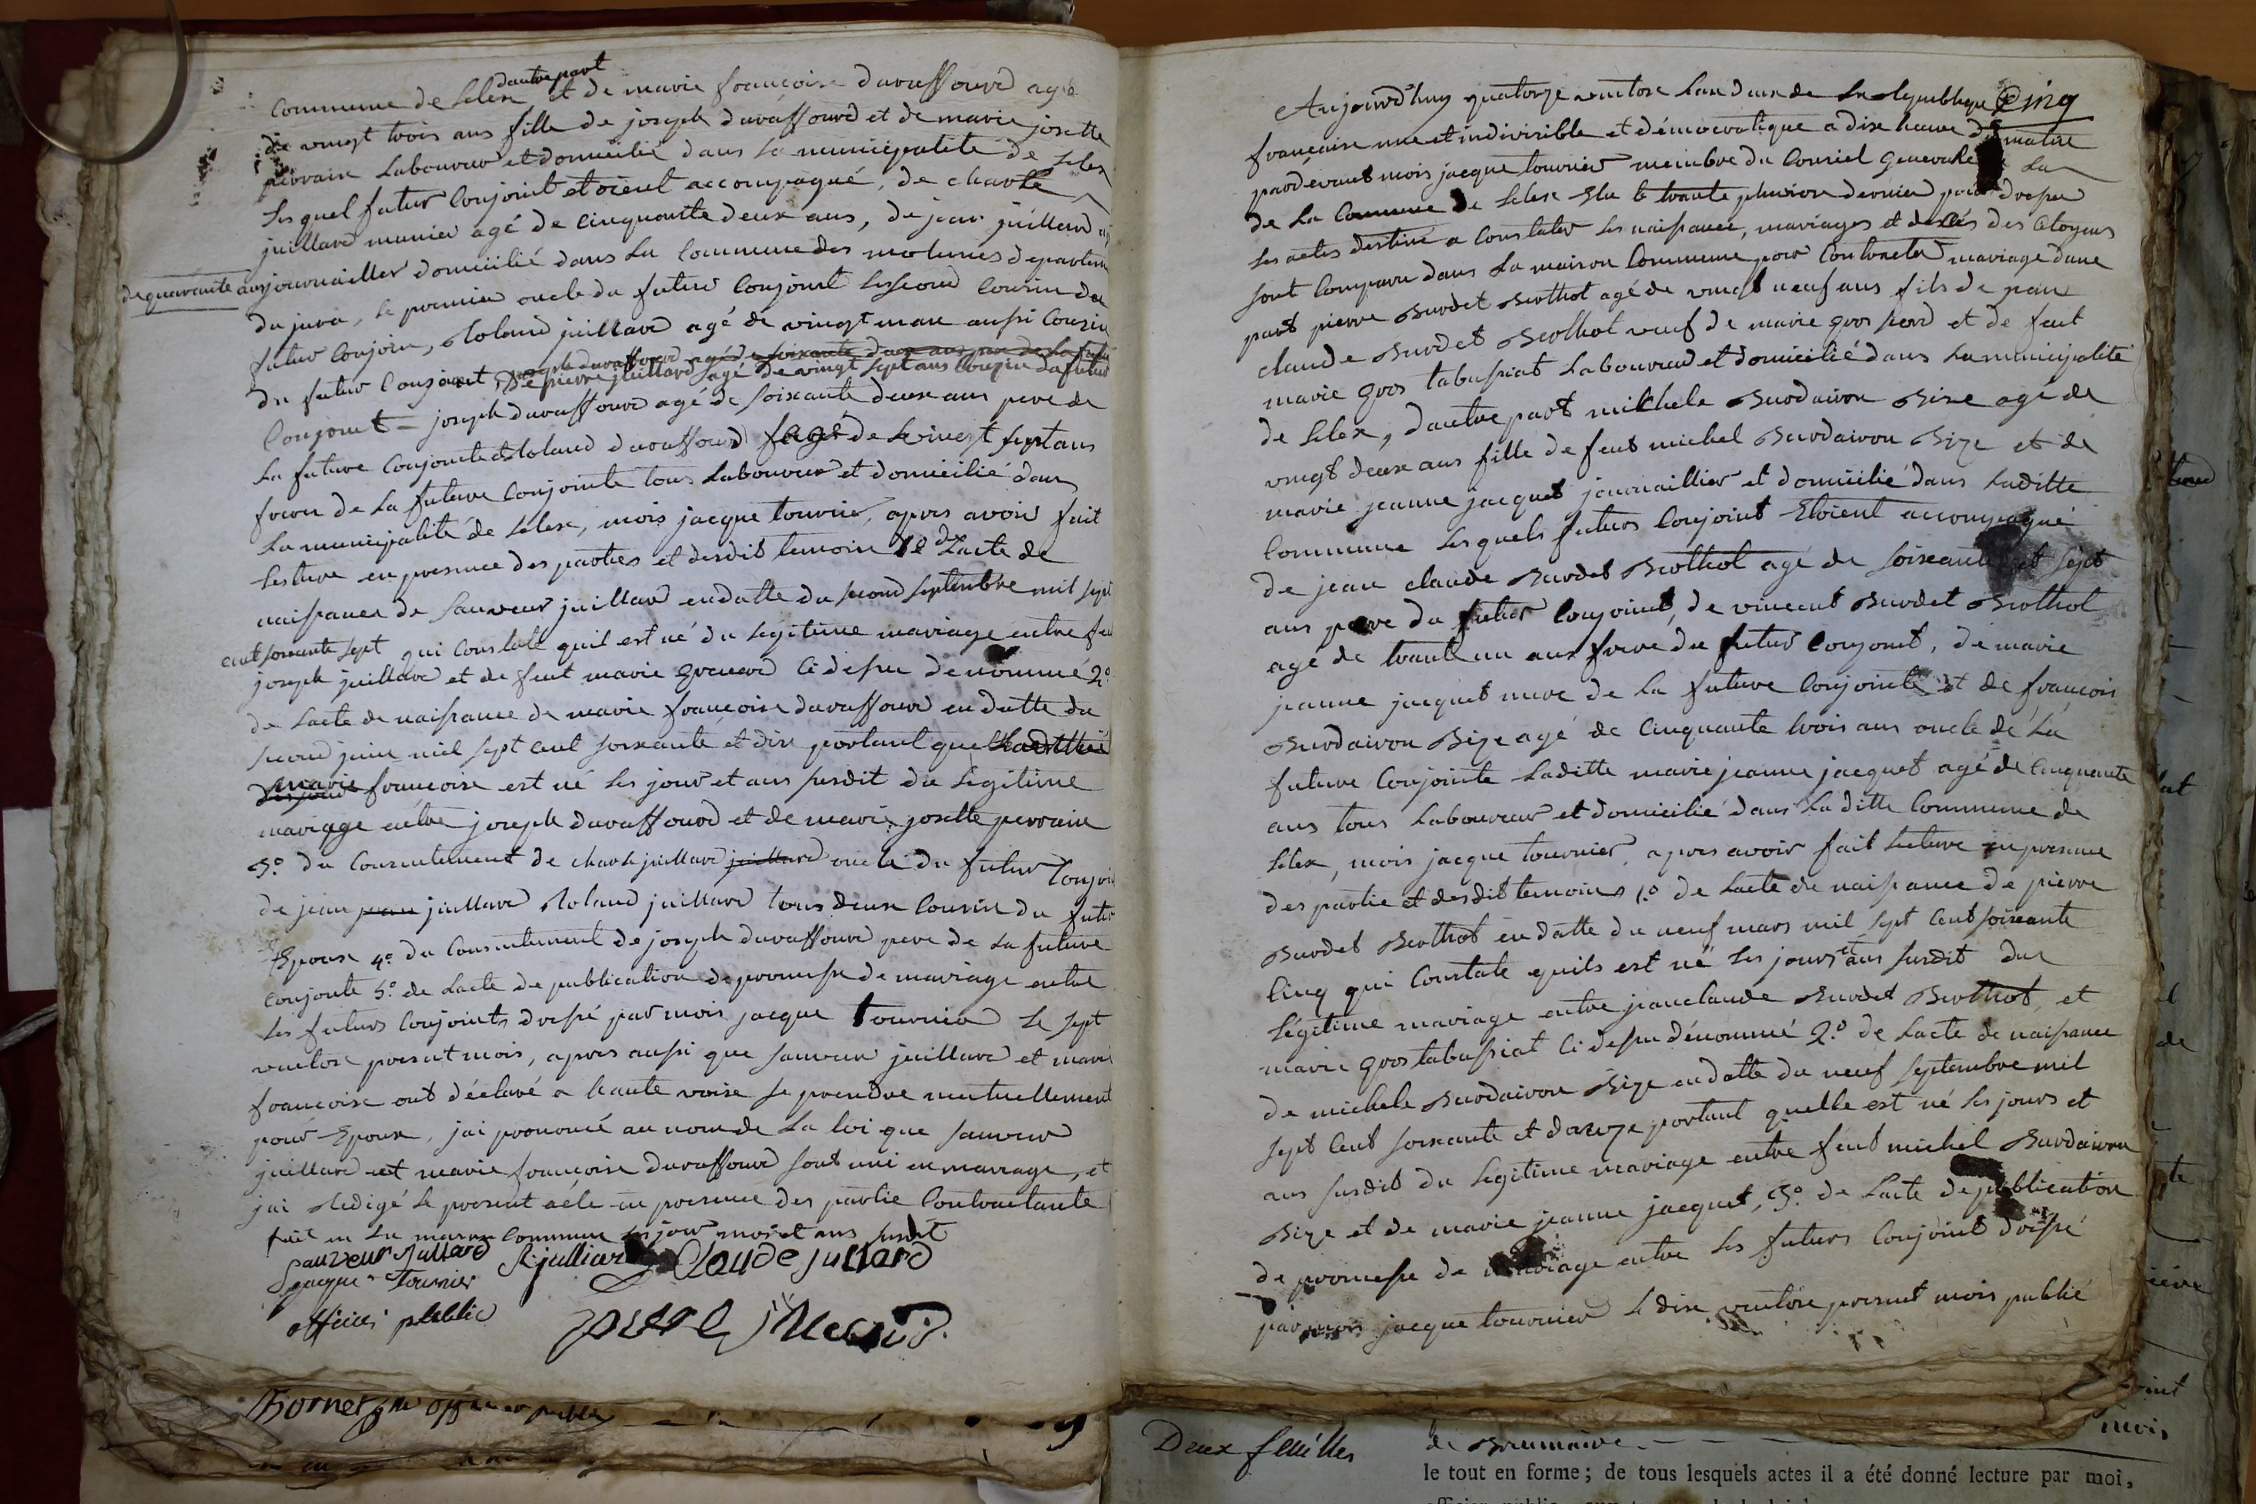 dautre part
Commune de Lelex et de marie françoise duraffourd agé
de vingt trois ans fille de joseph duraffourd et de marie josette
perrain Laboureur et domicilié dans la municipalité de Lelex
Les quel futur Conjoint etoient accompagné, de charle
juillard munier agé de Cinquante deux ans, de jean juillard
de quarante ans journaillier domicilié dans La Commune des molunes departem
du jura, le premier oncle du futur Conjoint Lesecond Cousin du
futur Conjoin, Roland juillard agé de vingt un an aussi Cousin
du futur Conjoint, joseph duraffourd agé de soixante deux ans
De pierre juillard agé de vingt sept ans Couzin du futur
Conjoint = joseph duraffourd agé de soixante deux ans pere de
La future Conjointe et Roland duraffourd agé de vingt sept ans
frere de La future Conjointe tous Laboureur et domicilié dans
La municipalité de Lelex, mois jacque tournier, apres avoir fait
Lecture en presence des parties et desdit temoin 1º de Lacte de
naissance de Sauveur juillard endatte du second septembre mil sept
cent soixante sept qui Constate quil est né du Legitime mariage entre feu
joseph juillard et de feut marie grenard Ci desu denommé 2º
de Lacte de naissance de marie françoise duraffourd en datte du
second juin mil sept cent soixante et dix portant que Ladite
marie françoise est né Les jour et ans susdit du Légitime
mariage entre joseph duraffourd et de marie josette perrain
3º du Consentement de charle juillard juillard oncle du futur Conjoin
de jean jean juillard Roland juillard tous deux Cousin du futur
Epoux 4º du Consentement de joseph duraffourd pere de La future
conjointe 5º de Lacte de publication de promesse de mariage entre
Les futurs Conjoints dressé par mois jacque tournier Le sept
ventose present mois, apres aussi que Sauveur juillard et marie
françoise ont déclaré a haute voix se prendre mutuellement
pour Epoux, jai prononcé au nom de La loi que Sauveur
juillard et marie françoise duraffourd sont uni en mariage, et
jai Redigé Le present acte en presence des partie Contractante
fait en La maison Commune Les jour mois et ans susdit
Sauveur Jullard R julliard Claude jullard
jacque Tournier
officier public
Aujourd'huy quatorze ventose Lan deux de La Republique Cinq
françaisse une et indivisible et démocratique a dix heure du matin
pardevant mois jacque tournier membre du Conseil General de La
de La Commune de Lelex Elu le trante pluviose dernier pour dresser
Les actes destiné a Constater Les naissance, mariages et décès des Citoyens
sont Comparu dans La maison Commune pour Contracter mariage dune
part pierre Burdet Berthot agé de vingt neuf ans fils de jean
claude Burdet Berthot veuf de marie gros perd et de feut
marie gros tabussiat Laboureur et domicilié dans La municipalité
de Lelex, dautre part michele Burdairon Bize agé de
vingt deux ans fille de feut michel Burdairon Bize et de
marie jeanne jacquet journaillier et domicilié dans Laditte
Commune Lesquels futurs Conjoint Etoient accompagné
de jean claude Burdet Berthot agé de soixante et sept
ans pere du futur Conjoint, de vincent Burdet Berthot
agé de trante un ans frere du futur Conjoint, de marie
jeanne jacquet mere de La future Conjointe et de françois
Burdairon Bize agé de Cinquante trois ans oncle de La
future Conjointe Laditte marie jeanne jacquet agé de Cinquante
ans tous Laboureur et domicilié dans La ditte Commune de
Lelex, mois jacque tournier, apres avoir fait Lecture en presence
des partie et desdit temoins 1º de Lacte de naissance de pierre
Burdet Berthot en datte du neuf mars mil sept Cent soixante
Cinq qui Constate quils est né Les jours et ans susdit du
Légitime mariage entre jeanclaude Burdet Berthot et
marie gros tabussiat Ci desu dénommé 2º de Lacte de naissance
de michele Burdairon Bize en datte du neuf septembre mil
sept Cent soixante et douze portant quelle est né Les jours et
ans susdit du Legitime mariage entre feut michel Burdairon
Bize et de marie jeanne jacquet, 3º de Lacte de publication
de promesse de mariage entre Les futurs Conjoint dressé
par mois jacque tournier Le dix ventose present mois publié
officier public
Deux feuilles
de Brumaire
mois,
le tout en forme; de tous lesquels actes il a été donné lecture par moi,